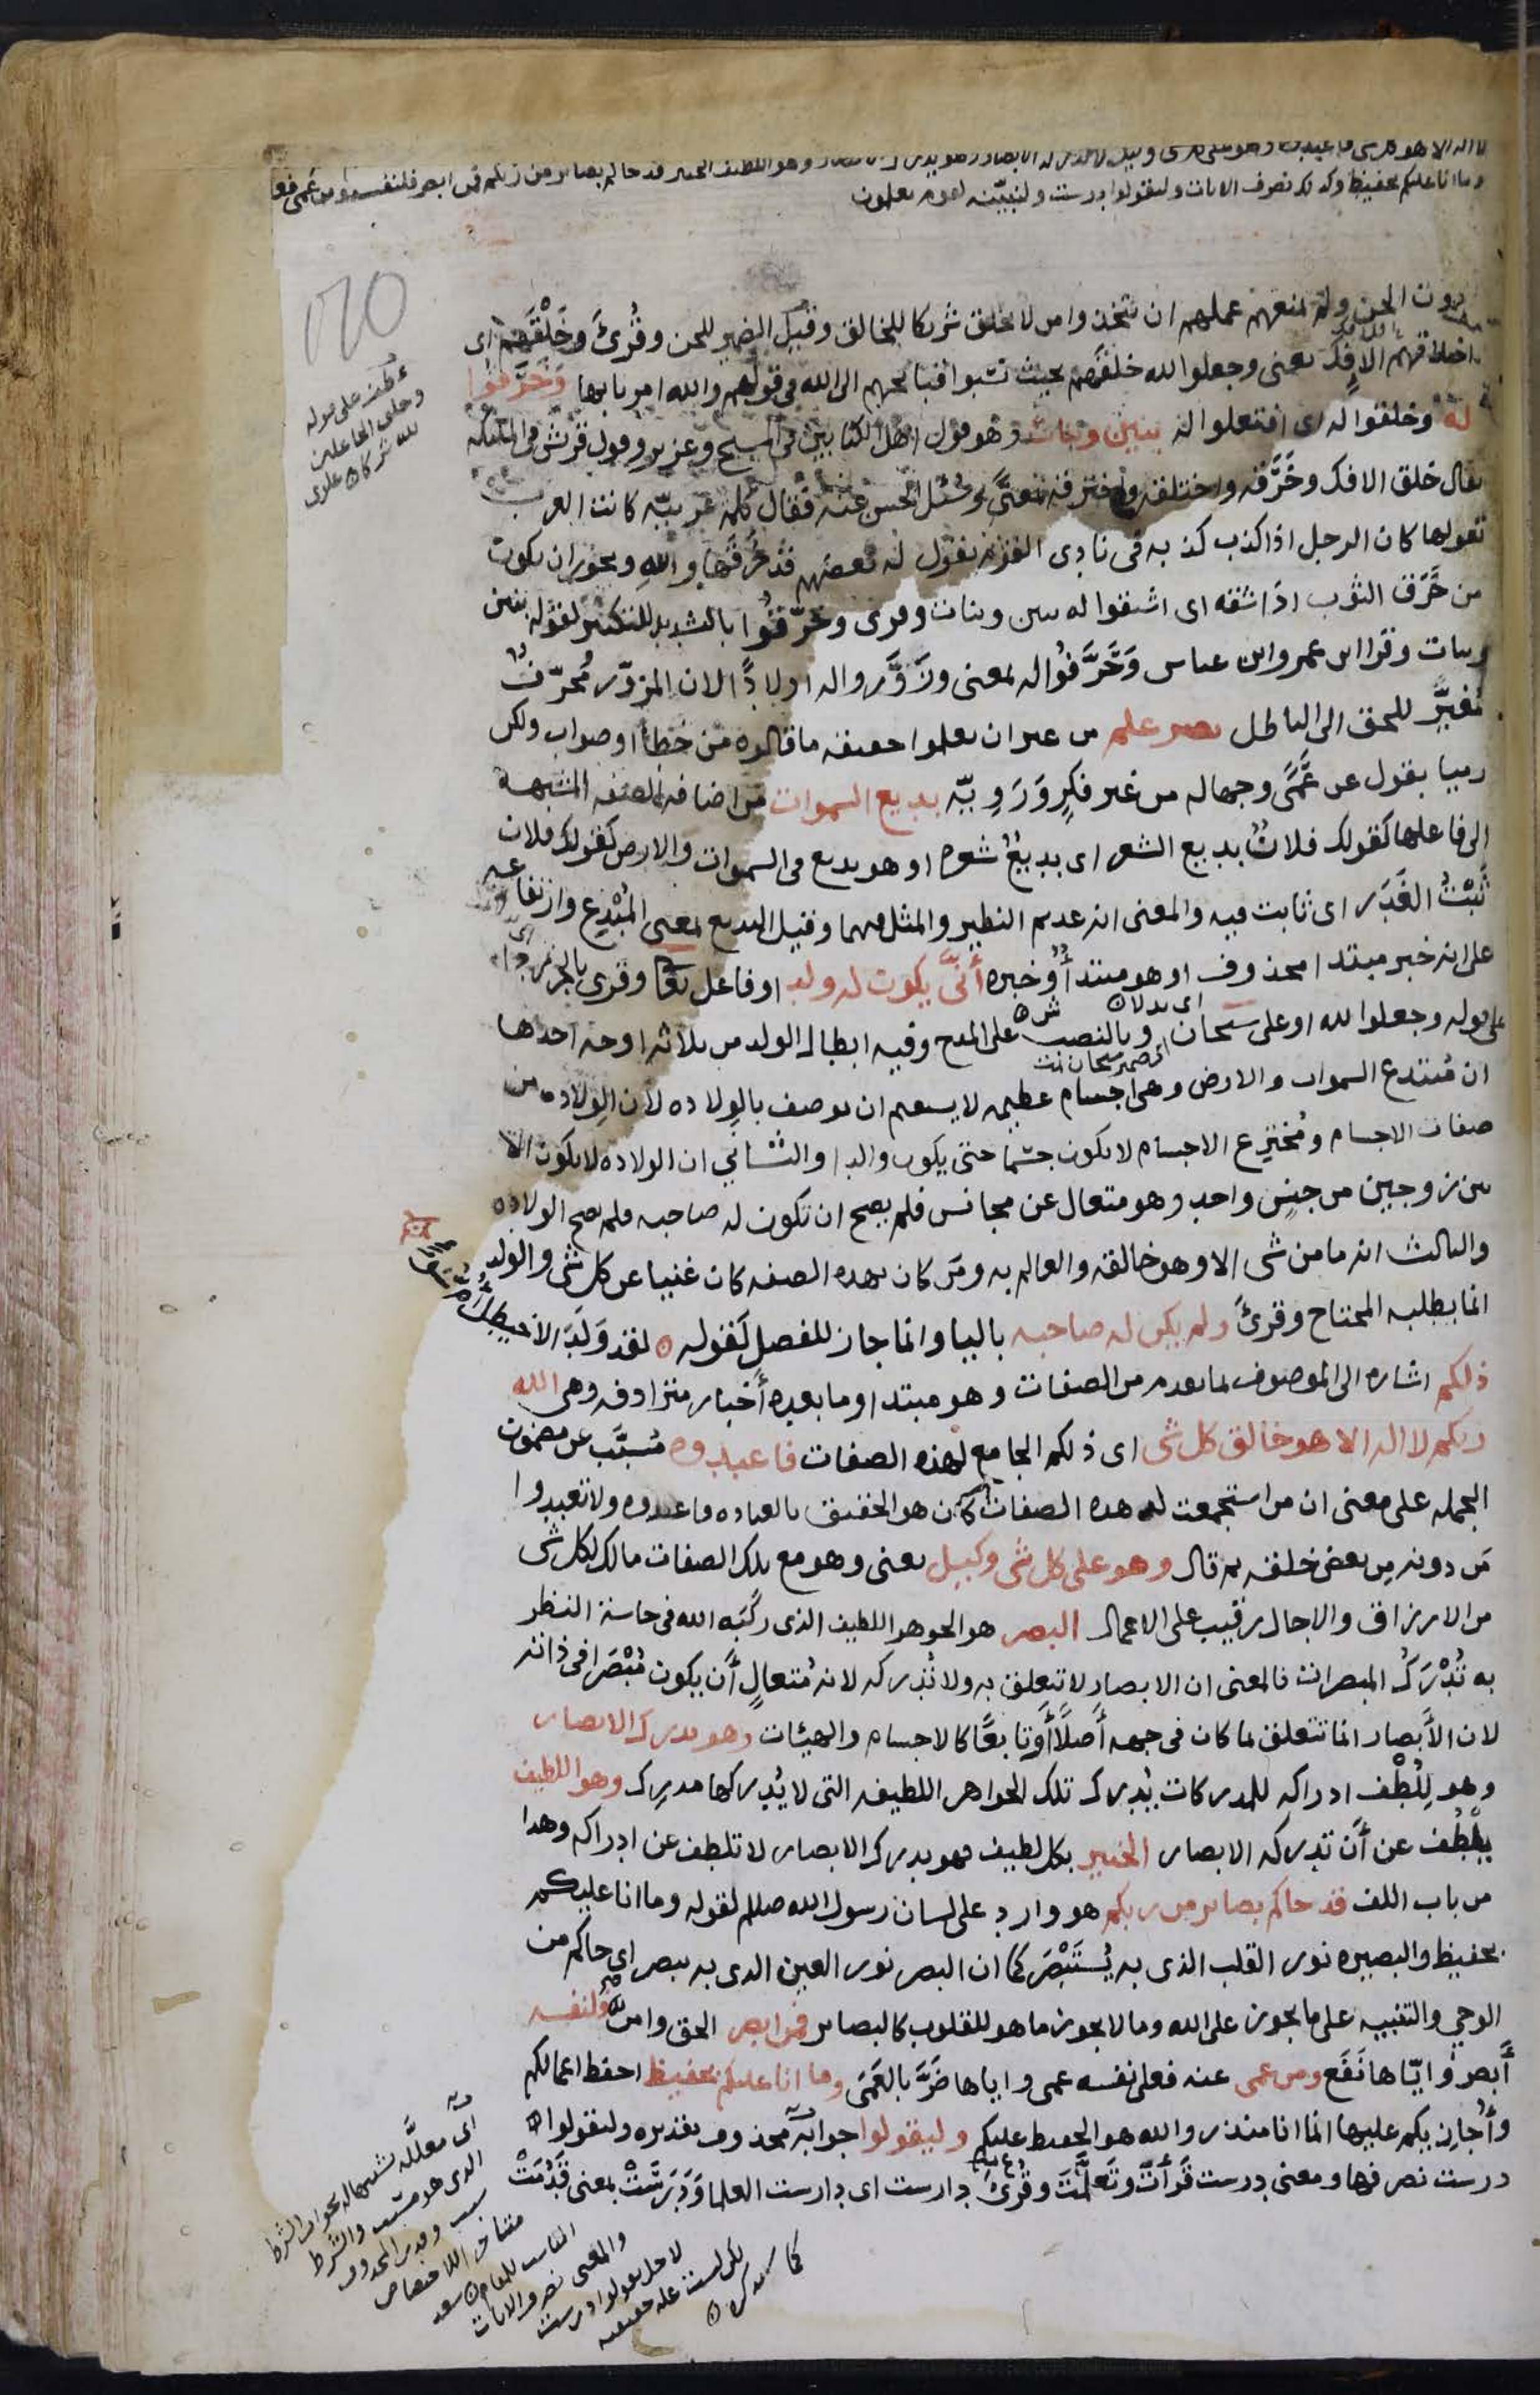 وما انا عليكم بحفيظ وكذلك نصرف الايات وليقولوا درست ولنبينه لقوم يعلمون
دون الجن ولم يمنعهم علمهم ان يتخذوا من لا يخلق شريكا للخالق وقيل الضمير للجن وقُرئ وخَلْقَهم اى
اختلاقهم الافك يعنى وجعلوا لله خلقهم حيث نسبوا قبائحهم الى الله فى قولهم والله امرنا بها وخرقوا
له وخلقوا له اى افتعلوا له بنين وبنات وهو قول اهل الكتابين فى المسيح وعزير وقول قريش فى الملئكه
يقال خلق الافك وخَرَّقه واختلقه واخترقه بمعنًى وسُئل الحسن عنه فقال كلمه عربيّه كانت العرب
تقولها كان الرجل اذا كذب كذبه فى نادى القوم يقول له بعضهم قد خَرَقَها والله ويجوز ان يكون
من خَرَق الثوب اذا شقه اى اشتقوا له بنين وبنات وقرى وخرّقُوا بالتشديد للتكثير لقوله بنين
وبنات وقرا ابن عمر وابن عباس وَحَرَّفُوا له بمعنى وزَوَّروا له اولادًا لان المزوّر مُحرّفٌ
مُغَيِّر للحق الى الباطل بغير علم من غير ان يعلموا حقيقه ما قالوه من خطأ او صواب ولكن
رميا بقول عن عَمًى وجهاله من غير فكرٍ ورَوِيّه بديع السموات من اضافه الصفه المشبهة
الى فاعلها كقولك فلانٌ بديع الشعر اى بديعٌ شعره او هو بديع فى السموات والارض كقولك فلان
ثَبْتُ الغَدَر اى ثابت فيه والمعنى انه عديم النظير والمثل فيهما وقيل البديع بمعنى المُبْدِع وارتفاعه
على انه خبر مبتدا محذوف او هو مبتدأ وخبره أنَّى يكون له ولد او فاعل تعا وقرى بالجر ردا
على قوله وجعلوا لله او على سبحان وبالنصب على المدح وفيه ابطال الولد من ثلاثه اوجه احدها
ان مُبتدع السموات والارض وهى اجسام عظيمه لا يستقيم ان يوصف بالولاده لان الولاده من
صفات الاجسام ومُخترِع الاجسام لا يكون جسما حتى يكون والدا والثانى ان الولاده لا يكون الا
بين زوجين من جنسٍ واحد وهو متعال عن مجانس فلم يصح ان تكون له صاحبه فلم يصح الولاده
والثالث انه ما من شى الا وهو خالقه والعالم به ومَن كان بهذه الصفه كان غنيا عن كل شى والولد
انما يطلبه المحتاج وقرئ ولم يكن له صاحبه باليا وانما جاز للفصل كقوله لقد وَلَدَ الاخيطلَ
ذلكم اشاره الى الموصوف بما تقدم من الصفات وهو مبتدا وما بعده أخبار مترادفه وهى الله
ربكم لا اله الا هو خالق كل شى اى ذلكم الجامع لهذه الصفات فاعبدوه مُسبَّب عن مضمون
الجمله على معنى ان من استجمعت له هذه الصفات كان هو الحقيق بالعباده فاعبدوه ولا تعبدوا
مَن دونه مِن بعض خلقه ثم قال وهو على كل شى وكيل يعنى وهو مع تلك الصفات مالك لكل شى
من الارزاق والاجال رقيب على الاعمال البصر هو الجوهر اللطيف الذى ركّبَه الله فى حاسة النظر
به تُدْرَكُ المبصرات فالمعنى ان الابصار لا تتعلق به ولا تُدركه لانه مُتعالٍ أن يكون مُبْصَرا فى ذاته
لان الأبصار انما تتعلق بما كان فى جهه أصلًا أوتابعًا كالاجسام والهيئات وهو يدرك الابصار
وهو لِلُطْف ادراكه للمدركات يُدرك تلك الجواهر اللطيفه التى لا يُدركها مدرك وهو اللطيف
يَلْطُف عن أن تدركه الابصار الخبير بكل لطيف فهو يدرك الابصار لا تلطف عن ادراكه وهذا
من باب اللف قد جاكم بصاير من ربكم هو وارد على لسان رسول الله صللم لقوله وما انا عليكم
بحفيظ والبصيره نور القلب الذى به يُسْتَبْصَر كما ان البصر نور العين الذى به يبصر اى جاكم من
الوحي والتنبيه على ما يجوز على الله وما لا يجوز ما هو للقلوب كالبصاير فمن ابصر الحق وامن فلنفسه
أَبصرَ وايّاها نَفَع ومن عمى عنه فعلى نفسه عمى واياها ضَرَّ بالعَمَى وما انا عليكم بحفيظ احفظ اعمالكم
وأُجازيكم عليها انما انا منذر والله هو الحفيظ عليكم وليقولوا جوابه محذوف تقديره وليقولوا
درست نصرفها ومعنى درست قَرأتَ وتَعلَّمتَ وقُرئَ دارست اى دارست العلما وَدَرَسَتْ بمعنى قَدُمَتْ
عطف على قوله